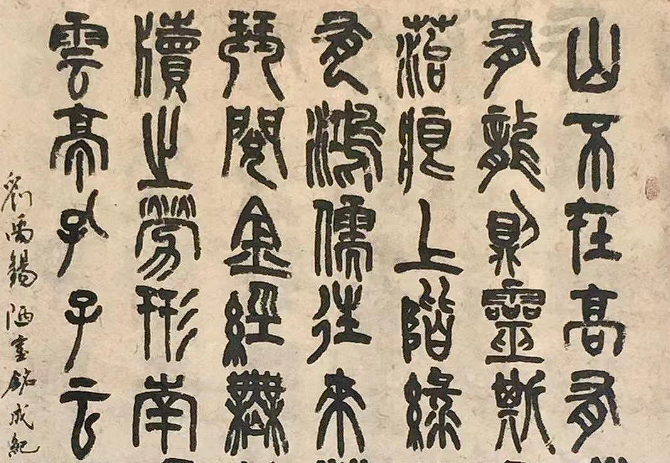 山不在高有
有龍則靈斯
菭痕上階綠
有鴻儒往來
琴閱金經無
牘之勞形南
雲亭孔子云
劉禹錫陋室銘成紀